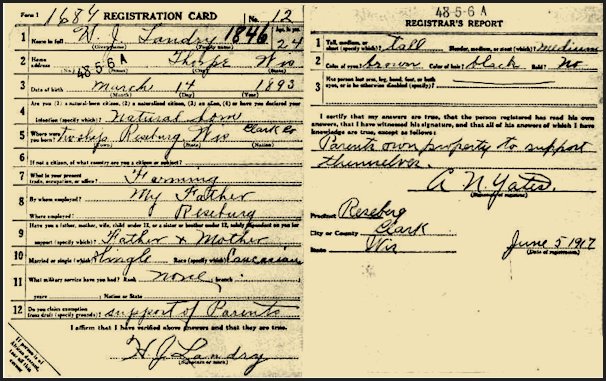 Form 1684 REGISTRATION CARD No. 12
1 Name in full H. J. Landry 1846 Age, in yrs. 24
(Given name) (Family name)
2 Home address 48-5-6 A Thorpe Wis
(No.) (Street) (City) (State)
3 Date of birth March 14 1893
(Month) (Day) (Year)
4 Are you (1) a natural-born citizen, (2) a naturalized citizen, (3) an alien, (4) or have you declared your
intention (specify which)? natural born
5 Where were you born? township Reseburg Wis Clark Co
(Town) (State) (Nation)
6 If not a citizen, of what country are you a citizen or subject?
7 What is your present trade, occupation, or office? Farming
8 By whom employed? My Father
Where employed? Reseburg
9 Have you a father, mother, wife, child under 12, or a sister or brother under 12, solely dependent on you for
support (specify which)? Father & Mother
10 Married or single (which)? Single Race (specify which)? Caucasian
11 What military service have you had? Rank none; branch
years; Nation or State
12 Do you claim exemption from draft (specify grounds)? support of Parents
I affirm that I have verified above answers and that they are true.
H J Landry
(Signature or mark)
If person is of African descent, tear off this corner
48-5-6 A
REGISTRAR'S REPORT
1 Tall, medium, or short (specify which)? tall Slender, medium, or stout (which)? medium
2 Color of eyes? brown Color of hair? black Bald? No
3 Has person lost arm, leg, hand, foot, or both eyes, or is he otherwise disabled (specify)?
I certify that my answers are true, that the person registered has read his own
answers, that I have witnessed his signature, and that all of his answers of which I have
knowledge are true, except as follows:
Parents own property to support
themselves.
A. N. Yates
(Signature of registrar)
Precinct Reseberg
City or County Clark
State Wis
June 5 1917
(Date of registration)